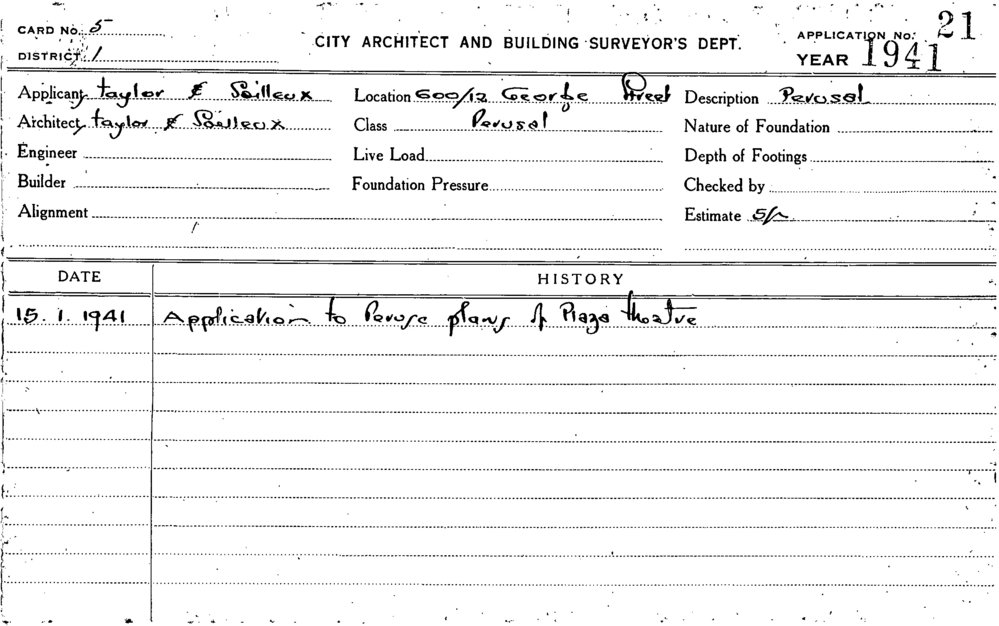 CARD NO. 5
DISTRICT 1
CITY ARCHITECT AND BUILDING SURVEYOR'S DEPT.
APPLICATION NO. 21
YEAR 1941
Applicant Taylor & Soilleux Location 600/12 George Street Description Perusal
Architect Taylor & Soilleux Class Perusal Nature of Foundation
Engineer Live Load Depth of Footings
Builder Foundation Pressure Checked by
Alignment Estimate 5/-
DATE HISTORY
15. 1. 1941 Application to Peruse plans of Plaza theatre